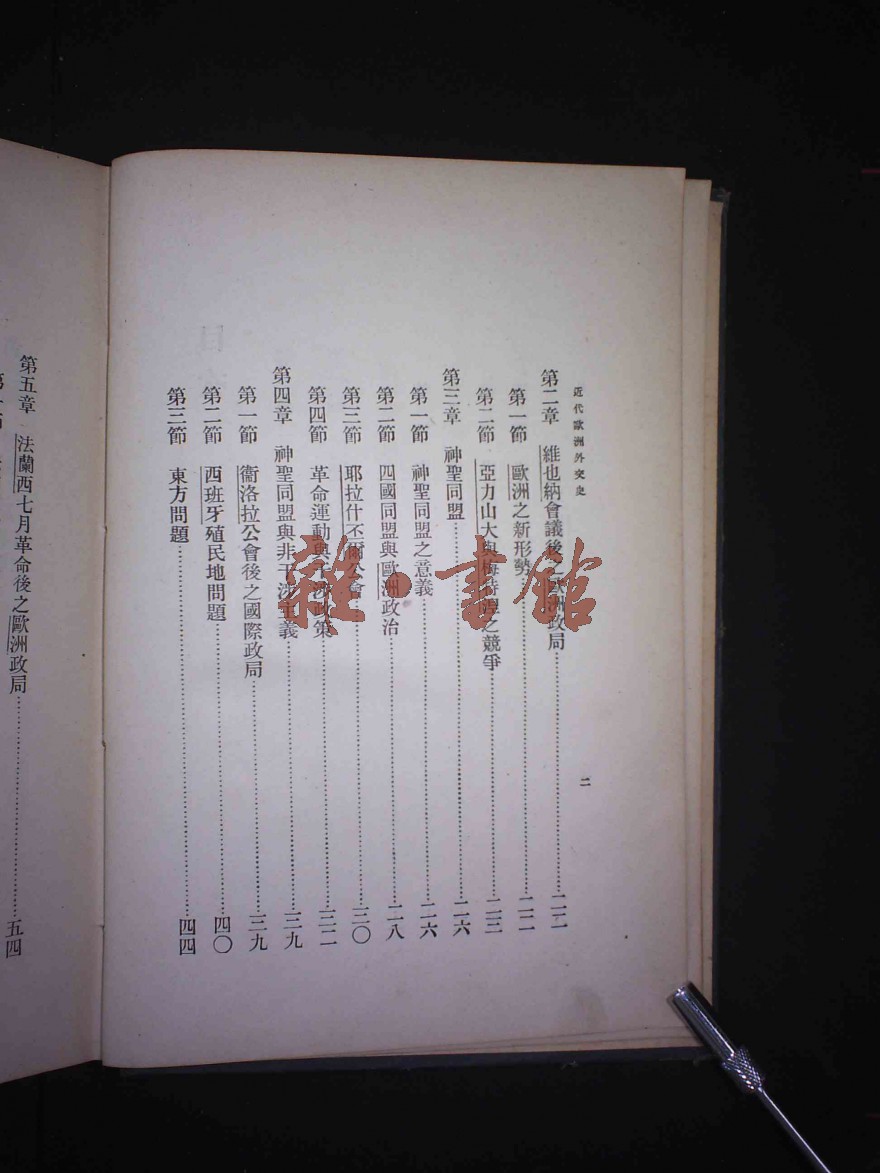 近代歐洲外交史
二
第二章 維也納會議後之歐洲政局 二二
第一節 歐洲之新形勢 二二
第二節 亞力山大與梅特湼之競爭 二三
第三章 神聖同盟 二六
第一節 神聖同盟之意義 二六
第二節 四國同盟與歐洲政治 二八
第三節 耶拉什丕爾公會 三〇
第四節 革命運動與干涉政策 三二
第四章 神聖同盟與非干涉主義 三九
第一節 衞洛拉公會後之國際政局 三九
第二節 西班牙殖民地問題 四〇
第三節 東方問題 四四
第五章 法蘭西七月革命後之歐洲政局 五四
雜·書館